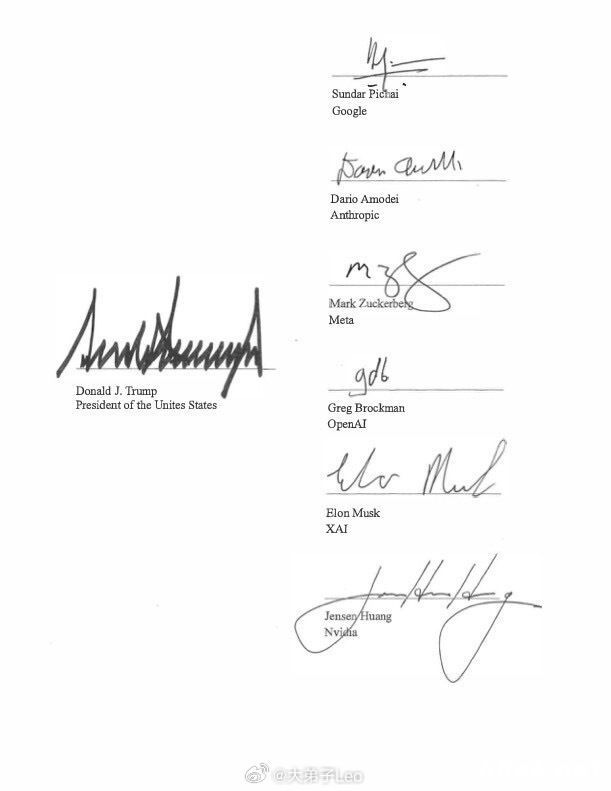 Sundar Pichai
Google
Dario Amodei
Anthropic
mzg
Mark Zuckerberg
Meta
Donald J. Trump
President of the Unites States
gdb
Greg Brockman
OpenAI
Elon Musk
Elon Musk
XAI
Jensen Huang
Nvidia
@大弟子Leo